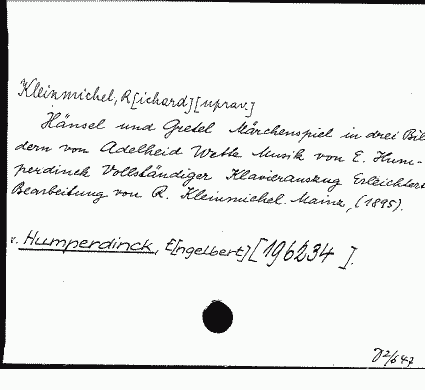 Kleinmichel, R[ichard] [uprav.]
Hänsel und Gretel Märchenspiel in drei Bil
dern von Adelheid Wette Musik von E. Hum-
perdinck Vollständiger Klavierauszug Erleichterte
Bearbeitung von R. Kleinmichel. Mainz, (1895).
v. Humperdinck, E[ngelbert] [196234].